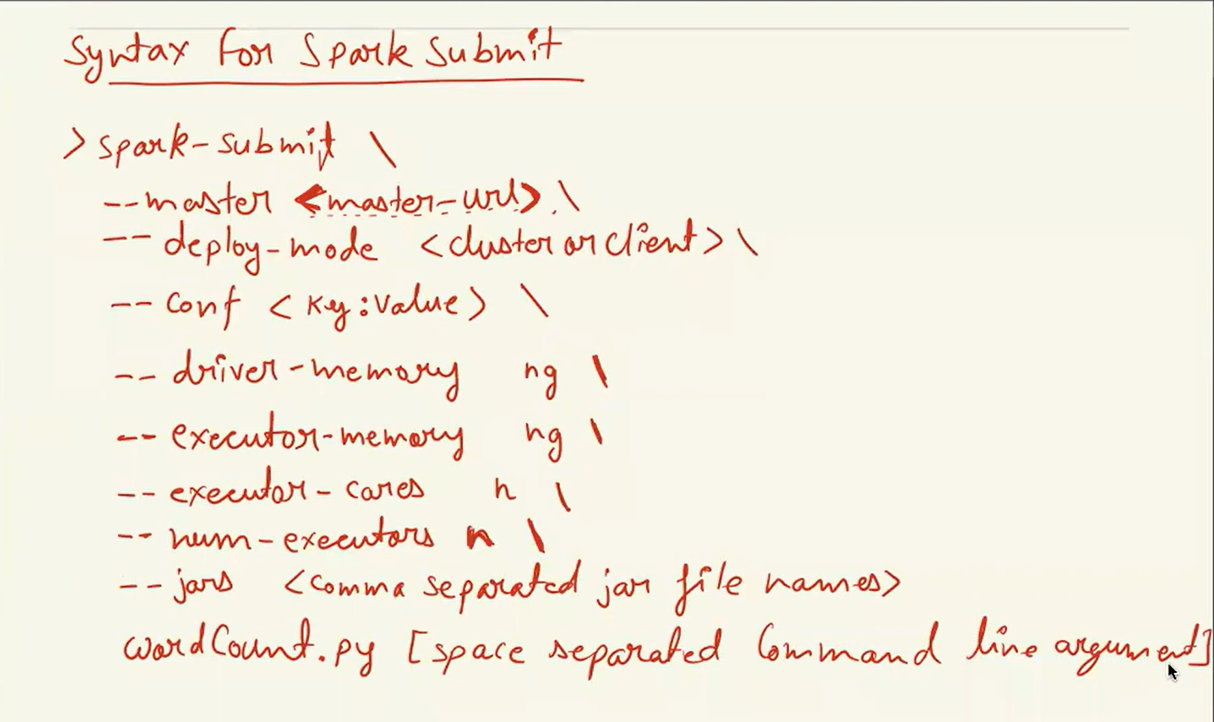 Syntax for Spark Submit
> spark-submit \
--master <master-url> \
-- deploy-mode <cluster or client> \
-- conf < key:value > \
-- driver-memory ng \
-- executor-memory ng \
-- executor-cores n \
-- num-executors n \
-- jars <comma separated jar file names>
wordCount.py [space separated Command line argument]